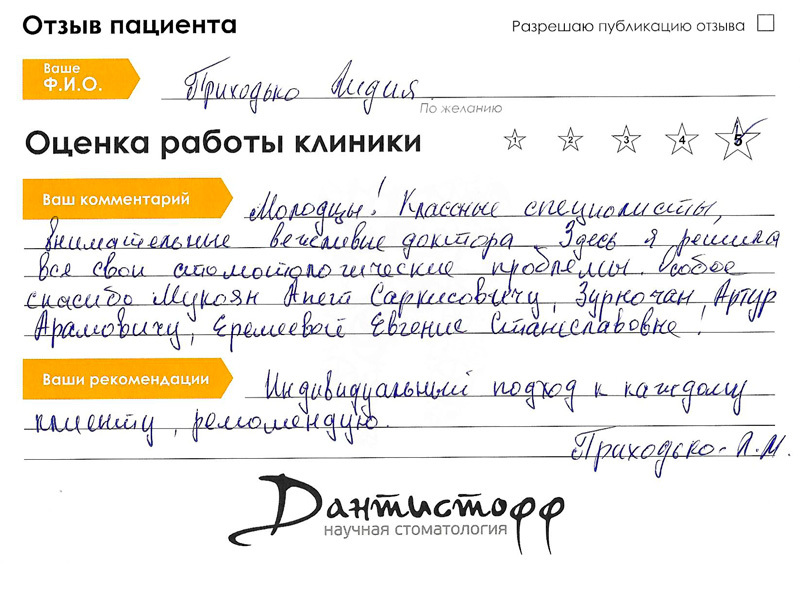 Отзыв пациента
Разрешаю публикацию отзыва
Ваше
Ф.И.О.
Приходько Лидия
По желанию
Оценка работы клиники
1 2 3 4 5
Ваш комментарий
Молодцы! Классные специалисты,
внимательные вежливые доктора. Здесь я решила
все свои стоматологические проблемы. Особое
спасибо Мукоян Апет Саркисовичу, Зурночан Артур
Арамовичу, Еремеевой Евгение Станиславовне!
Ваши рекомендации
Индивидуальный подход к каждому
клиенту, рекомендую.
Приходько Л.М.
Дантистофф
научная стоматология